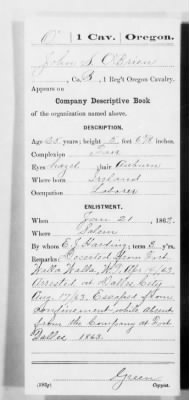 O' | 1 Cav. | Oregon.
John S. O'Brien
, Co. B, 1 Reg't Oregon Cavalry.
Appears on
Company Descriptive Book
of the organization named above.
DESCRIPTION.
Age 25 years; height 5 feet 6¾ inches.
Complexion Fair
Eyes hazel; hair Auburn
Where born Ireland
Occupation Laborer
ENLISTMENT.
When Jan 21, 1862.
Where Salem
By whom E. J. Harding; term 3 y'rs.
Remarks: Deserted from Fort
Walla Walla, W.T. Apr 16/63
Arrested at Dalles City
Aug. 17/63. Escaped from
confinement while absent
from the Company at Fort
Dalles 1863.
Green
Copyist.